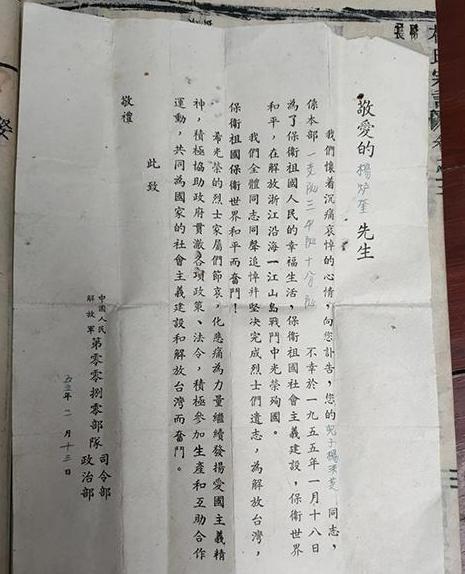 敬愛的楊炉奎先生
我們懷着沉痛哀悼的心情，向您訃告，您的兒子楊滨芝同志，
係本部一支队三中队十分队 不幸於一九五五年一月十八日
為了保衛祖國人民的幸福生活，保衛祖國社會主義建設，保衛世界
和平，在解放浙江沿海一江山島戰鬥中光榮殉國。
我們全體同志同聲追悼幷堅决完成烈士們遺志，為解放台灣，
保衛祖國保衛世界和平而奮鬥！
希光榮的烈士家屬們節哀，化悲痛為力量繼續發揚愛國主義精
神，積極協助政府貫澈各項政策、法令，積極參加生產和互助合作
運動，共同為國家的社會主義建設和解放台灣而奮鬥。
此致
敬禮
中國人民
解放軍
第零零捌零部隊
司令部
政治部
五五年二月十三日